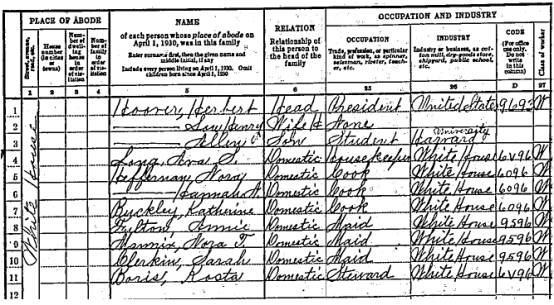 PLACE OF ABODE NAME RELATION OCCUPATION AND INDUSTRY
of each person whose place of abode on April 1, 1930, was in this family
Enter surname first, then the given name and middle initial, if any
Include every person living on April 1, 1930. Omit children born since April 1, 1930
Relationship of this person to the head of the family
OCCUPATION INDUSTRY CODE
Trade, profession, or particular kind of work, as spinner, salesman, riveter, teacher, etc.
Industry or business, as cotton mill, dry-goods store, shipyard, public school, etc.
(For office use only. Do not write in this column)
Class of worker
Street, avenue, road, etc.
House number (in cities or towns)
Number of dwelling house in order of visitation
Number of family in order of visitation
1 2 3 4 5 6 25 26 D 27
White House
1 Hoover, Herbert Head President United States 9693 W
2 Lou Henry Wife H None
3 Son Student Harvard University
4 Long, Ava S. Domestic Housekeeper White House 6V96 W
5 Heffernan, Nora Domestic Cook White House 6096 W
6 Hannah Domestic Cook White House 6096 W
7 Buckley, Katherine Domestic Cook White House 6096 W
8 Fulton, Annie Domestic Maid White House 9596 W
9 Nora T. Domestic Maid White House 9596 W
10 Clerkin, Sarah Domestic Maid White House 9596 W
11 Boris, Kosta Domestic Steward White House 6V96 W